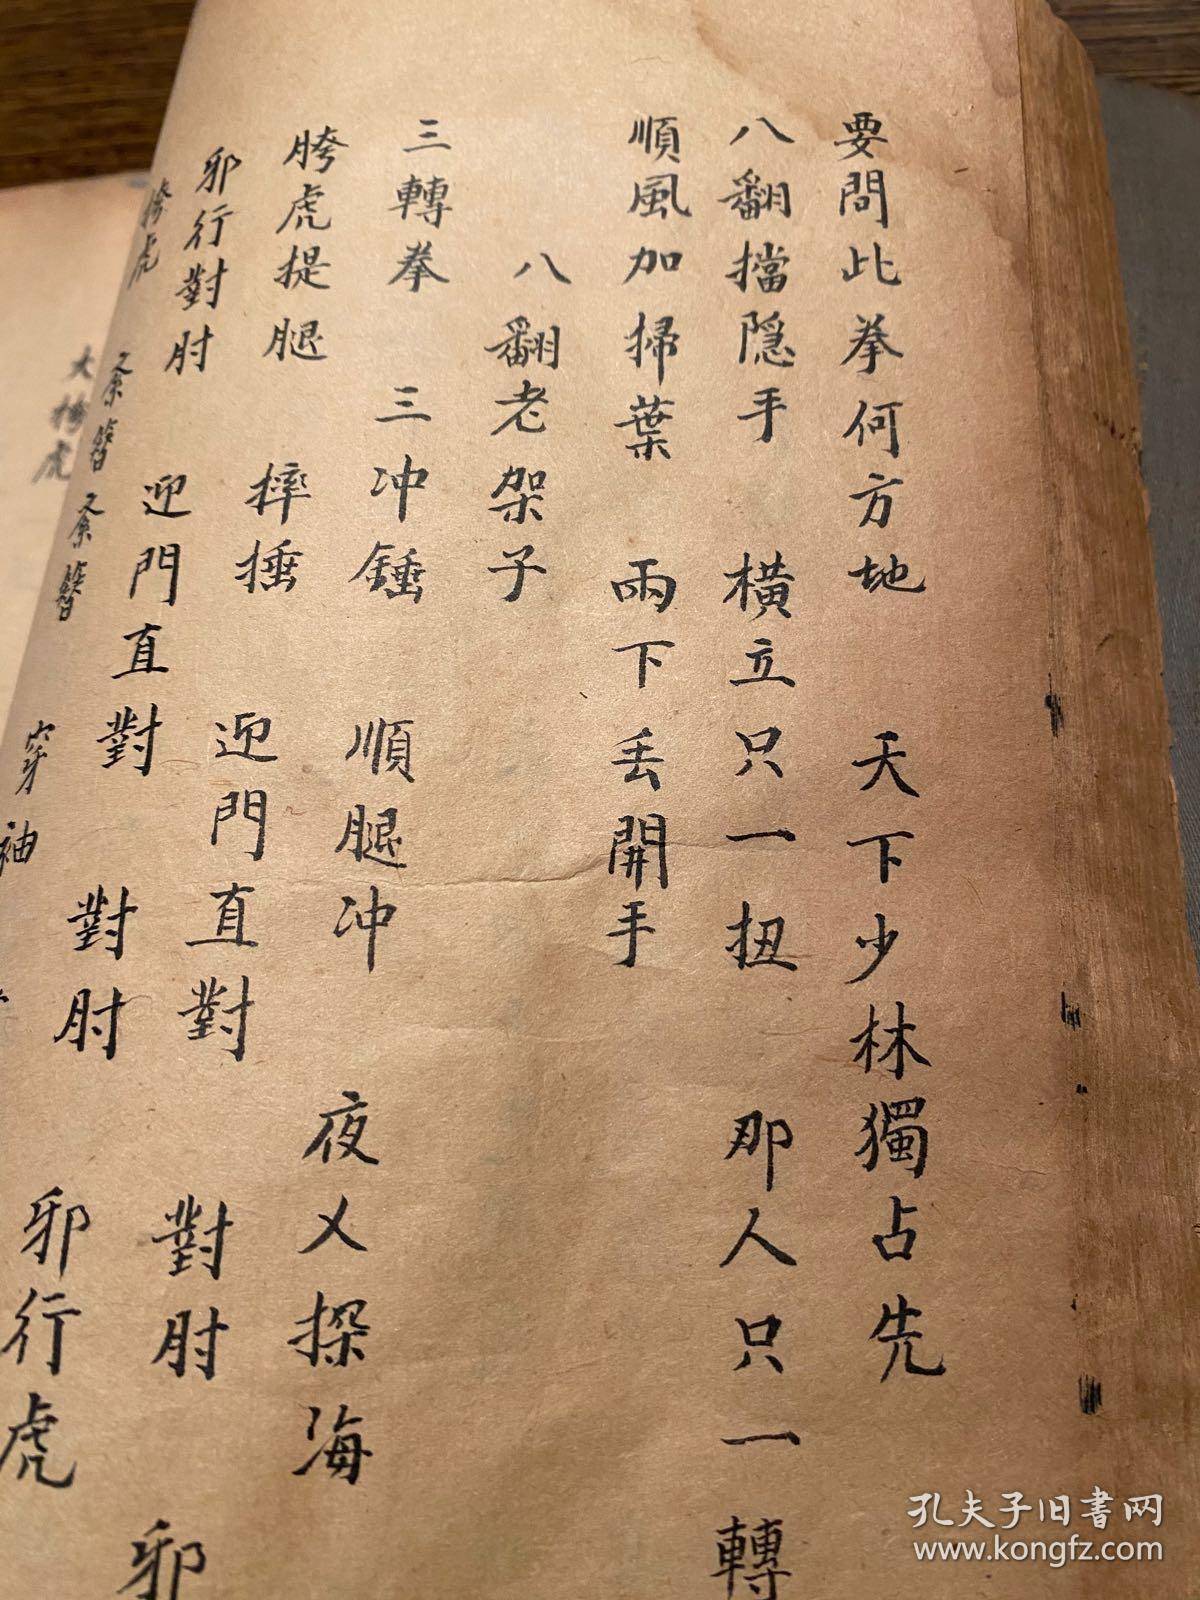 要問此拳何方地 天下少林獨占先
八翻擋隐手 橫立只一扭 那人只一轉
順風加掃葉 兩下丢開手
八翻老架子
三轉拳 三冲錘 順腿冲 夜乂探海
胯虎提腿 摔捶 迎門直對 對肘
邪行對肘 迎門直對 對肘 邪
胯虎 穿袖 邪行虎
大胯虎
孔夫子旧書网
www.kongfz.com